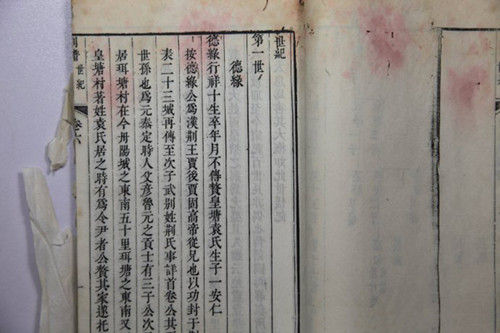 世紀
第一世
德緣
德緣行祥十生卒年月不傳贅皇塘袁氏生子一安仁
按德緣公爲漢荆王賈後賈固高帝從兄也以功封于
表二十三城再傳至次子武别姓荆氏事詳首卷公其
世孫也爲元泰定時人父彦魯元之貢士有三子公次
居珥塘村在今丹陽城之東南五十里珥塘之東南又
皇塘村著姓袁氏居之時有爲令尹者公贅其家遂托
世紀
卷六